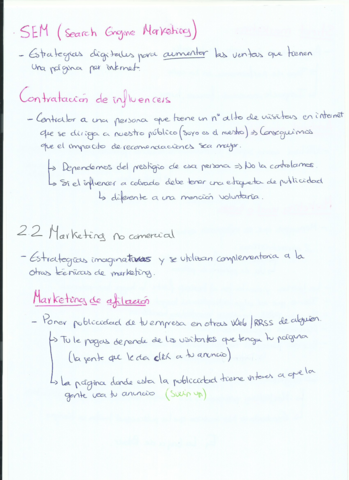 SEM (Search Engine Marketing)
- Estrategias digitales para aumentar las ventas que tienen
una página por internet.
Contratación de influencers
- Contactar a una persona que tiene un nº alto de visitas en internet
que se dirija a nuestro público (Soro es el mentos) => Conseguimos
que el impacto de recomendaciones sea mejor.
↳ Dependemos del prestigio de esa persona => No la controlamos
↳ Si el influencer a cobrado debe tener una etiqueta de publicidad
↳ diferente a una mención voluntaria.
2.2 Marketing no comercial
- Estrategias imaginativas y se utilizan complementaria a la
otras técnicas de marketing.
Marketing de afiliación
- Poner publicidad de tu empresa en otras Web/RRSS de alguien.
↳ Tu le pagas depende de los visitantes que tenga tu página
(la gente que le da click a tu anuncio)
↳ La página donde esta la publicidad tiene interes a que la
gente vea tu anuncio